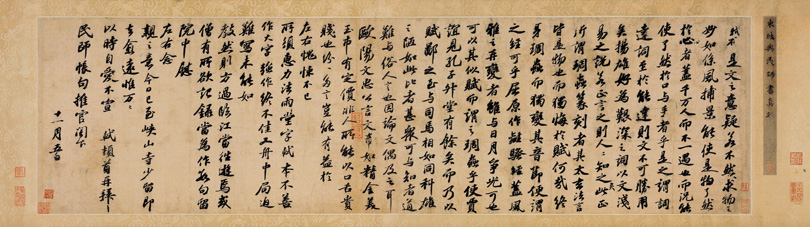 東坡與民師書真跡
是文之意疑若不然求物之
妙如係風捕景能使是物了然
於心者蓋千萬人而不一遇也而況能
使了然於口與手者乎是之謂詞
達詞至於能達則文不可勝用
矣揚雄好為艱深之詞以文淺
易之說若正言之則人人知之矣此正
所謂雕蟲篆刻者其太玄法言
皆是物也而獨悔於賦何哉終
身雕蟲而獨變其音節便謂
之經可乎屈原作離騷經蓋風
雅之再變者雖與日月爭光可也
可以其似賦而謂之雕蟲乎使賈
誼見孔子升堂有餘矣而乃以
賦鄙之至與司馬相如同科雄
之陋如此比者甚眾可與知者道
難與俗人言也因論文偶及之耳
歐陽文忠公言文章如精金美
玉市有定價非人所能以口舌貴
賤也紛紛多言豈能有益於
左右愧悚不已
所須惠力法雨堂字軾本不善
作大字強作終不佳又舟中局迫
難寫未能如
教然則方過臨江當往遊焉或
僧有所欲記錄當為作數句留
院中慰
左右念
親之意今日已至峽山寺少留即
去愈遠惟萬萬
以時自愛不宣 軾頓首再拜
民師帳句推官閣下
十一月五日